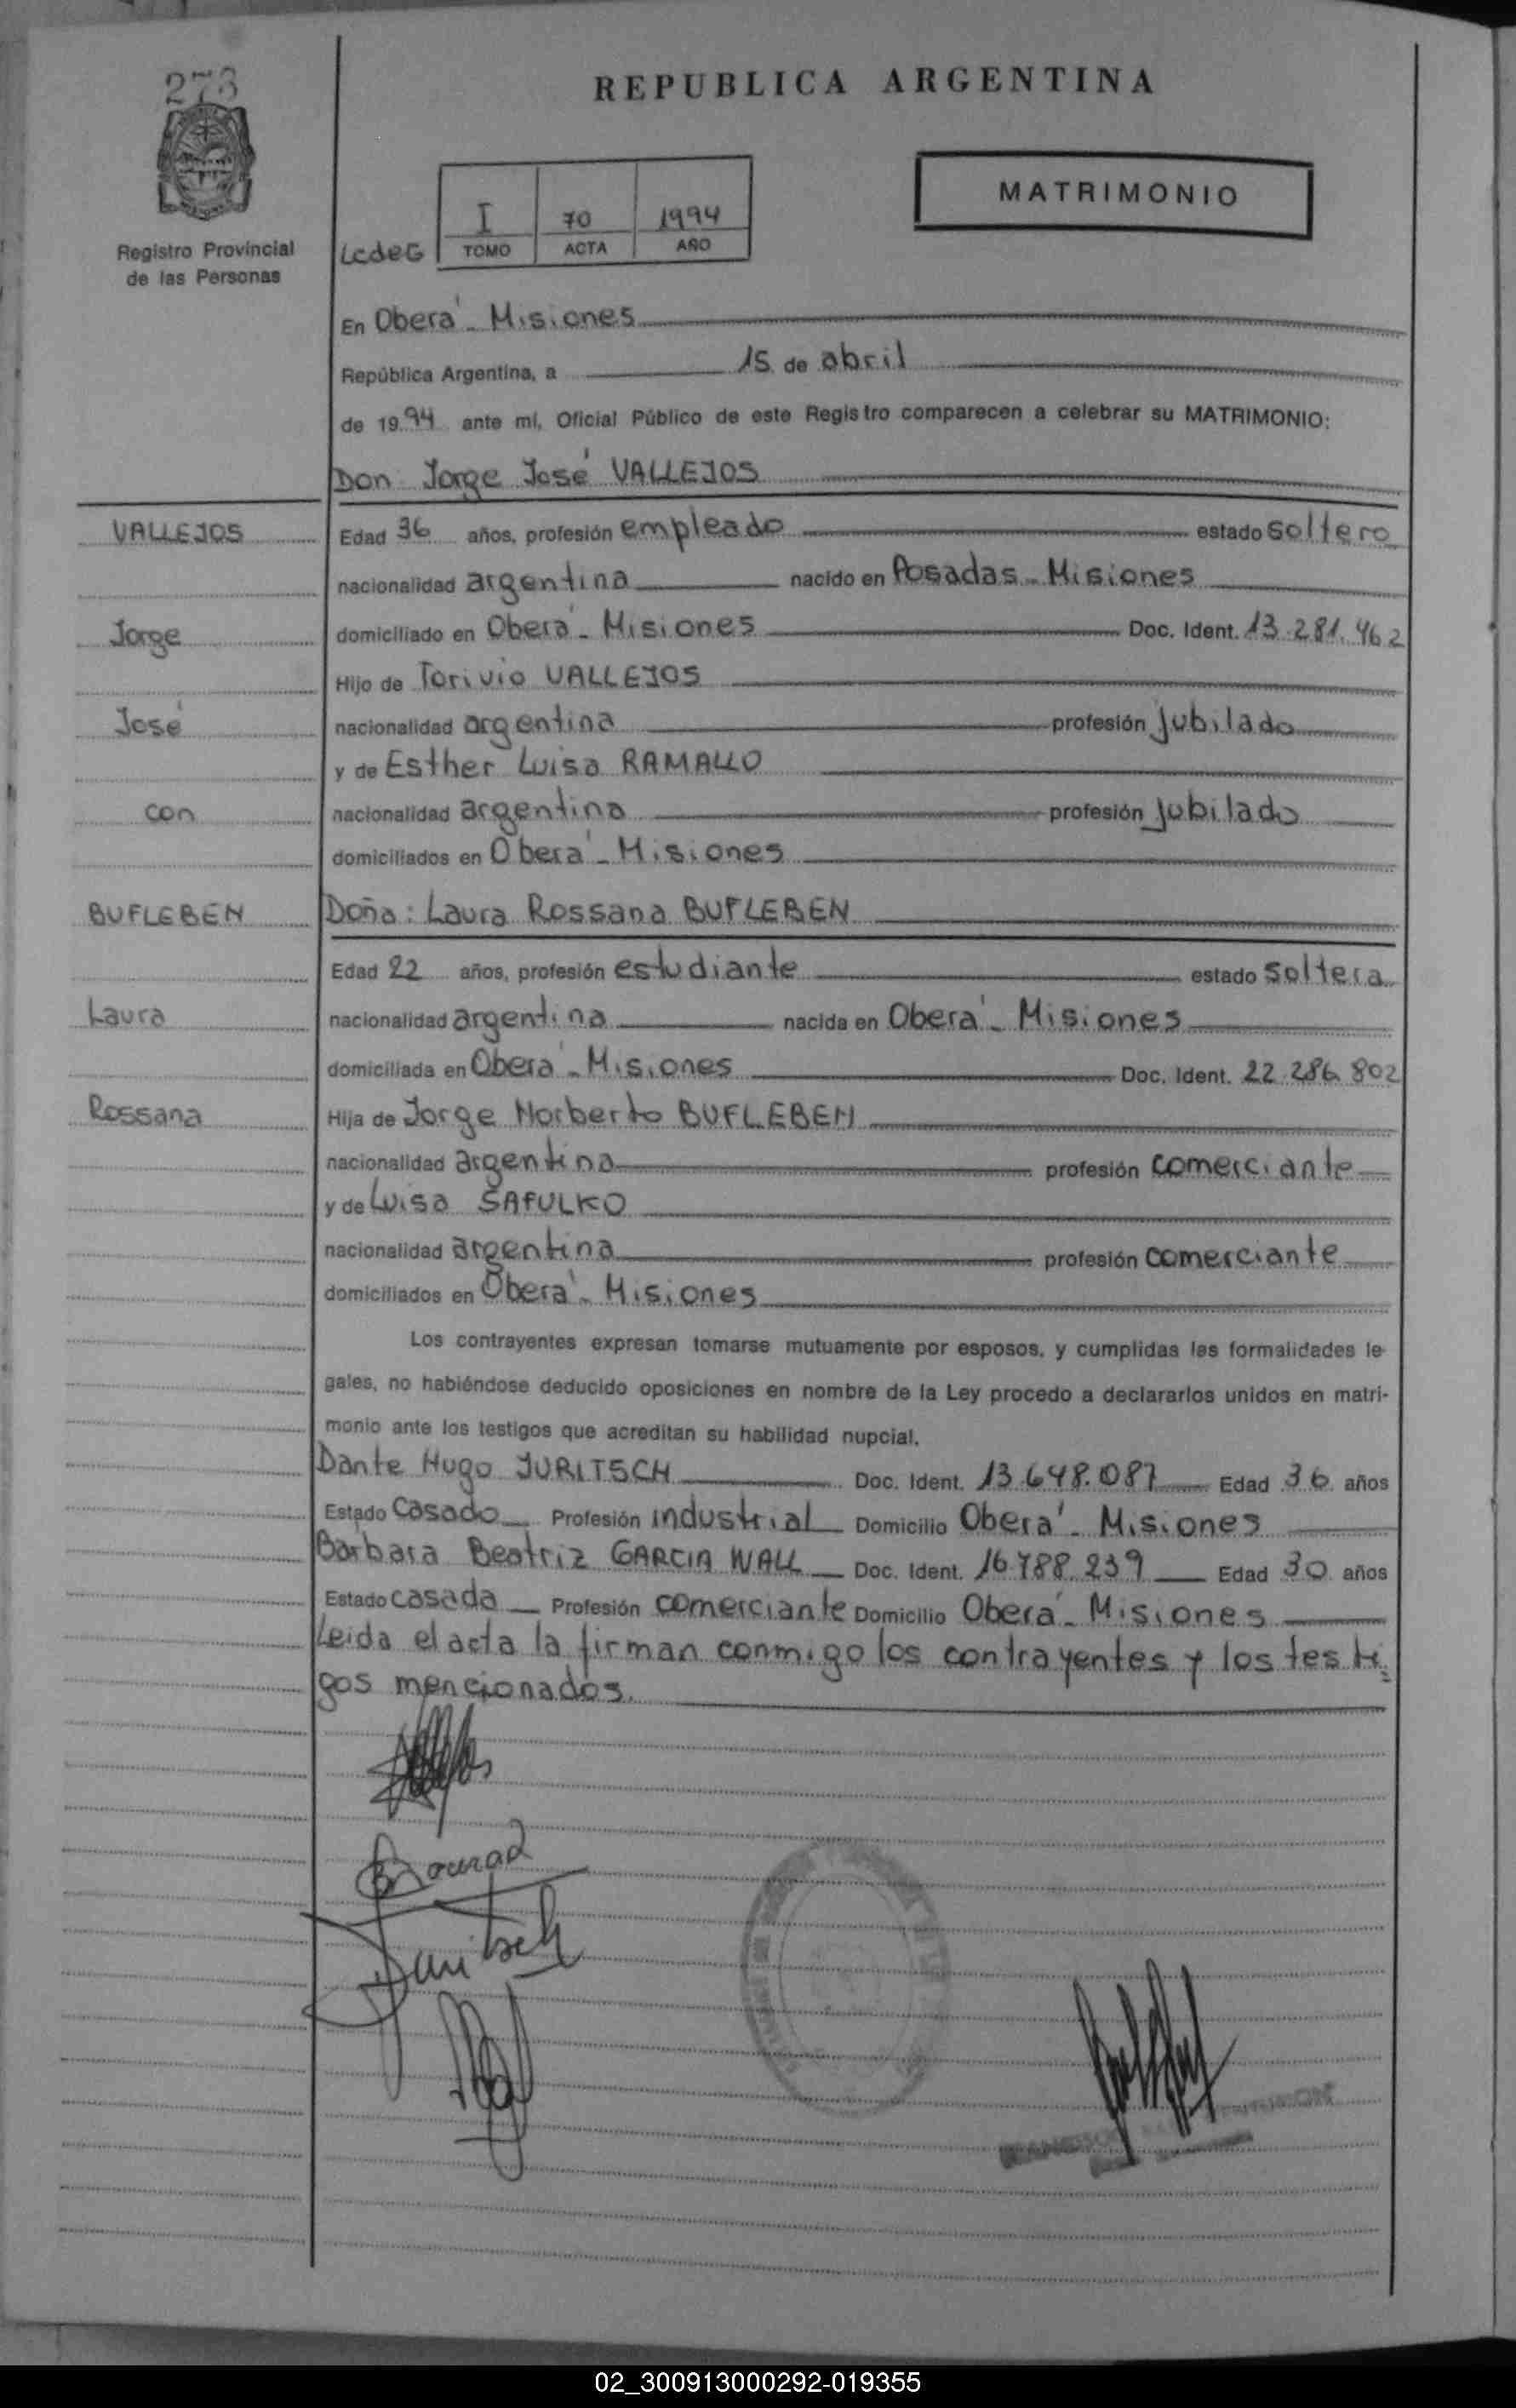 273
REPUBLICA ARGENTINA
MATRIMONIO
I 70 1994
LcdeG TOMO ACTA AÑO
Registro Provincial
de las Personas
En Oberá - Misiones
República Argentina, a 15 de abril
de 1994 ante mí, Oficial Público de este Registro comparecen a celebrar su MATRIMONIO:
Don Jorge José VALLEJOS
VALLEJOS
Edad 36 años, profesión empleado estado soltero
nacionalidad argentina nacido en Posadas - Misiones
Jorge
domiciliado en Oberá - Misiones Doc. Ident. 13.281.462
Hijo de Torivio VALLEJOS
José
nacionalidad argentina profesión jubilado
y de Esther Luisa RAMALLO
con
nacionalidad argentina profesión jubilado
domiciliados en Oberá - Misiones
BUFLEBEN
Doña: Laura Rossana BUFLEBEN
Edad 22 años, profesión estudiante estado soltera
Laura
nacionalidad argentina nacida en Oberá - Misiones
domiciliada en Oberá - Misiones Doc. Ident. 22.286.802
Rossana
Hija de Jorge Norberto BUFLEBEN
nacionalidad argentina profesión comerciante
y de Luisa SAFULKO
nacionalidad argentina profesión comerciante
domiciliados en Oberá - Misiones
Los contrayentes expresan tomarse mutuamente por esposos, y cumplidas las formalidades le-
gales, no habiéndose deducido oposiciones en nombre de la Ley procedo a declararlos unidos en matri-
monio ante los testigos que acreditan su habilidad nupcial.
Dante Hugo JURITSCH Doc. Ident. 13.648.087 Edad 36 años
Estado Casado Profesión industrial Domicilio Oberá - Misiones
Bárbara Beatriz GARCIA WALL Doc. Ident. 16.788.239 Edad 30 años
Estado casada Profesión comerciante Domicilio Oberá - Misiones
Leida el acta la firman conmigo los contrayentes y los testi=
gos mencionados.
Juritsch
02_300913000292-019355